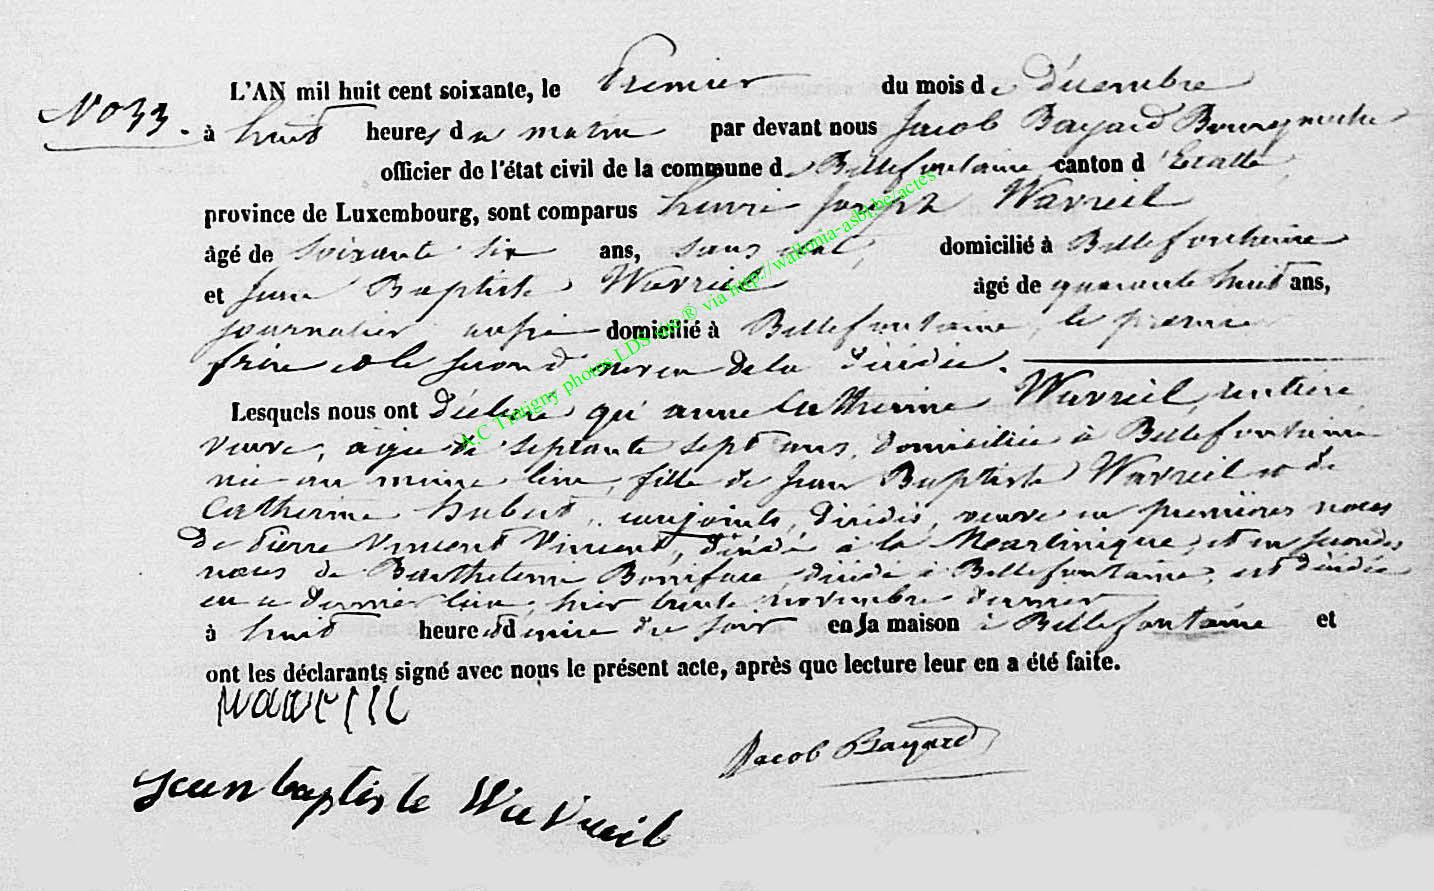 No 33.
L'AN mil huit cent soixante, le Premier du mois de Décembre
à huit heures du matin par devant nous Jacob Bayard Bourgmestre
officier de l'état civil de la commune de Bellefontaine canton d'Etalle,
province de Luxembourg, sont comparus henri joseph Wavreil
âgé de soixante six ans, sans état, domicilié à Bellefontaine
et jean Baptiste Wavreil âgé de quarante huit ans,
journalier aussi domicilié à Bellefontaine, le premier
frère et le second neveu de la décédée.
Lesquels nous ont Déclaré qu'anne Catherine Wavreil rentière,
veuve, agée de septante sept ans, domiciliée à Bellefontaine
née au même lieu, fille de jean Baptiste Wavreil et de
Catherine hubert, conjoints, décédés, veuve en premières noces
De Pierre Vincent Vincent, décédé à la Martinique, et en secondes
noces de Barthelemi Boniface, décédé à Bellefontaine, est décédée
en ce dernier lieu, hier trente novembre dernier
à huit heures et demie du soir en sa maison à Bellefontaine et
ont les déclarants signé avec nous le présent acte, après que lecture leur en a été faite.
wavreil
Jacob Bayard
jean baptiste Wavreil
A.C Tintigny photos LDS ® via http://wallonia-asbl.be/actes